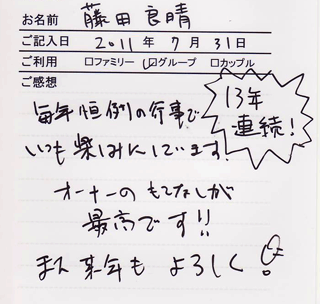 お名前 藤田良晴
ご記入日 2011年 7月 31日
ご利用 □ファミリー ☑グループ □カップル
ご感想
13年
連続!
毎年恒例の行事で
いつも楽しみにしています!
オーナーのもてなしが
最高です!!
また来年もよろしく!